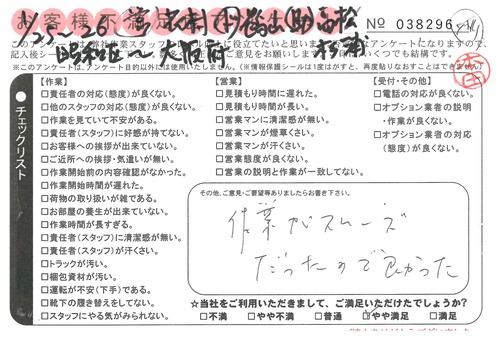 お客様満足
No 038296
このアンケートは弊社作業スタッフ
に役立てたいと思い
アンケートになりますので、
記入後シー
ご意見をお願い
いくつでも結構です。
※このアンケートは、アンケート目的以外には使用いたしません。(※情報保護シールは1度はがすと、再度貼りなおすことはできません)
チェックリスト
【作業】
□責任者の対応(態度)が良くない。
□他のスタッフの対応(態度)が良くない。
□作業を見ていて不安がある。
□責任者(スタッフ)に好感が持てない。
□お客様への挨拶が出来ていない。
□ご近所への挨拶・気遣いが無い。
□作業開始前の内容確認がなかった。
□作業開始時間が遅れた。
□荷物の取り扱いが雑である。
□お部屋の養生が出来ていない。
□作業時間が長すぎる。
□責任者(スタッフ)に清潔感が無い。
□責任者(スタッフ)が汗くさい。
□トラックが汚い。
□梱包資材が汚い。
□運転が不安(下手)である。
□靴下の履き替えをしてない。
□スタッフにやる気がみられない。
【営業】
□見積もり時間に遅れた。
□見積もり時間が長い。
□営業マンに清潔感が無い。
□営業マンが煙草くさい。
□営業マンが汗くさい。
□営業態度が良くない。
□営業の説明と作業が一致してない。
【受付・その他】
□電話の対応が良くない。
□オプション業者の説明
・作業が良くない。
□オプション業者の対応
(態度)が良くない。
その他、ご意見・ご要望等ありましたらお書き下さい。
作業がスムーズ
だったので良かった
☆当社をご利用いただきまして、ご満足いただけたでしょうか?
□不満 □やや不満 □普通 □やや満足 □満足